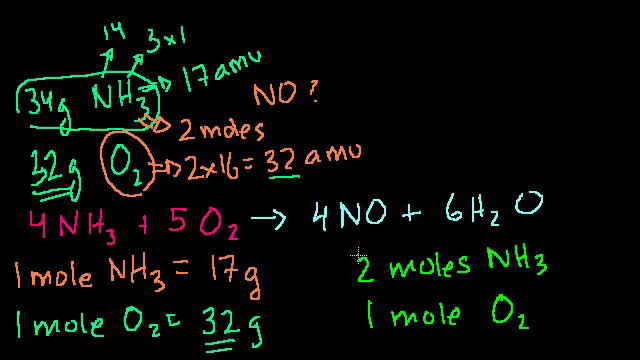 14 3x1
34g NH3 → 17 amu
NO?
→ 2 moles
32g O2 → 2x16 = 32 amu
4NH3 + 5O2 → 4NO + 6H2O
1 mole NH3 = 17g
2 moles NH3
1 mole O2 = 32g
1 mole O2